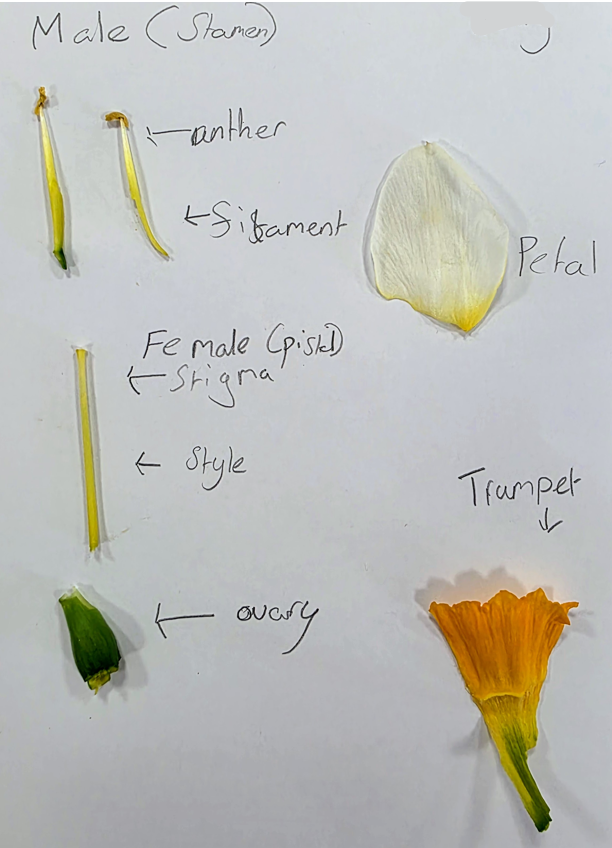 Male (Stamen)
anther
filament
Petal
Female (pistil)
Stigma
Style
Trumpet
ovary